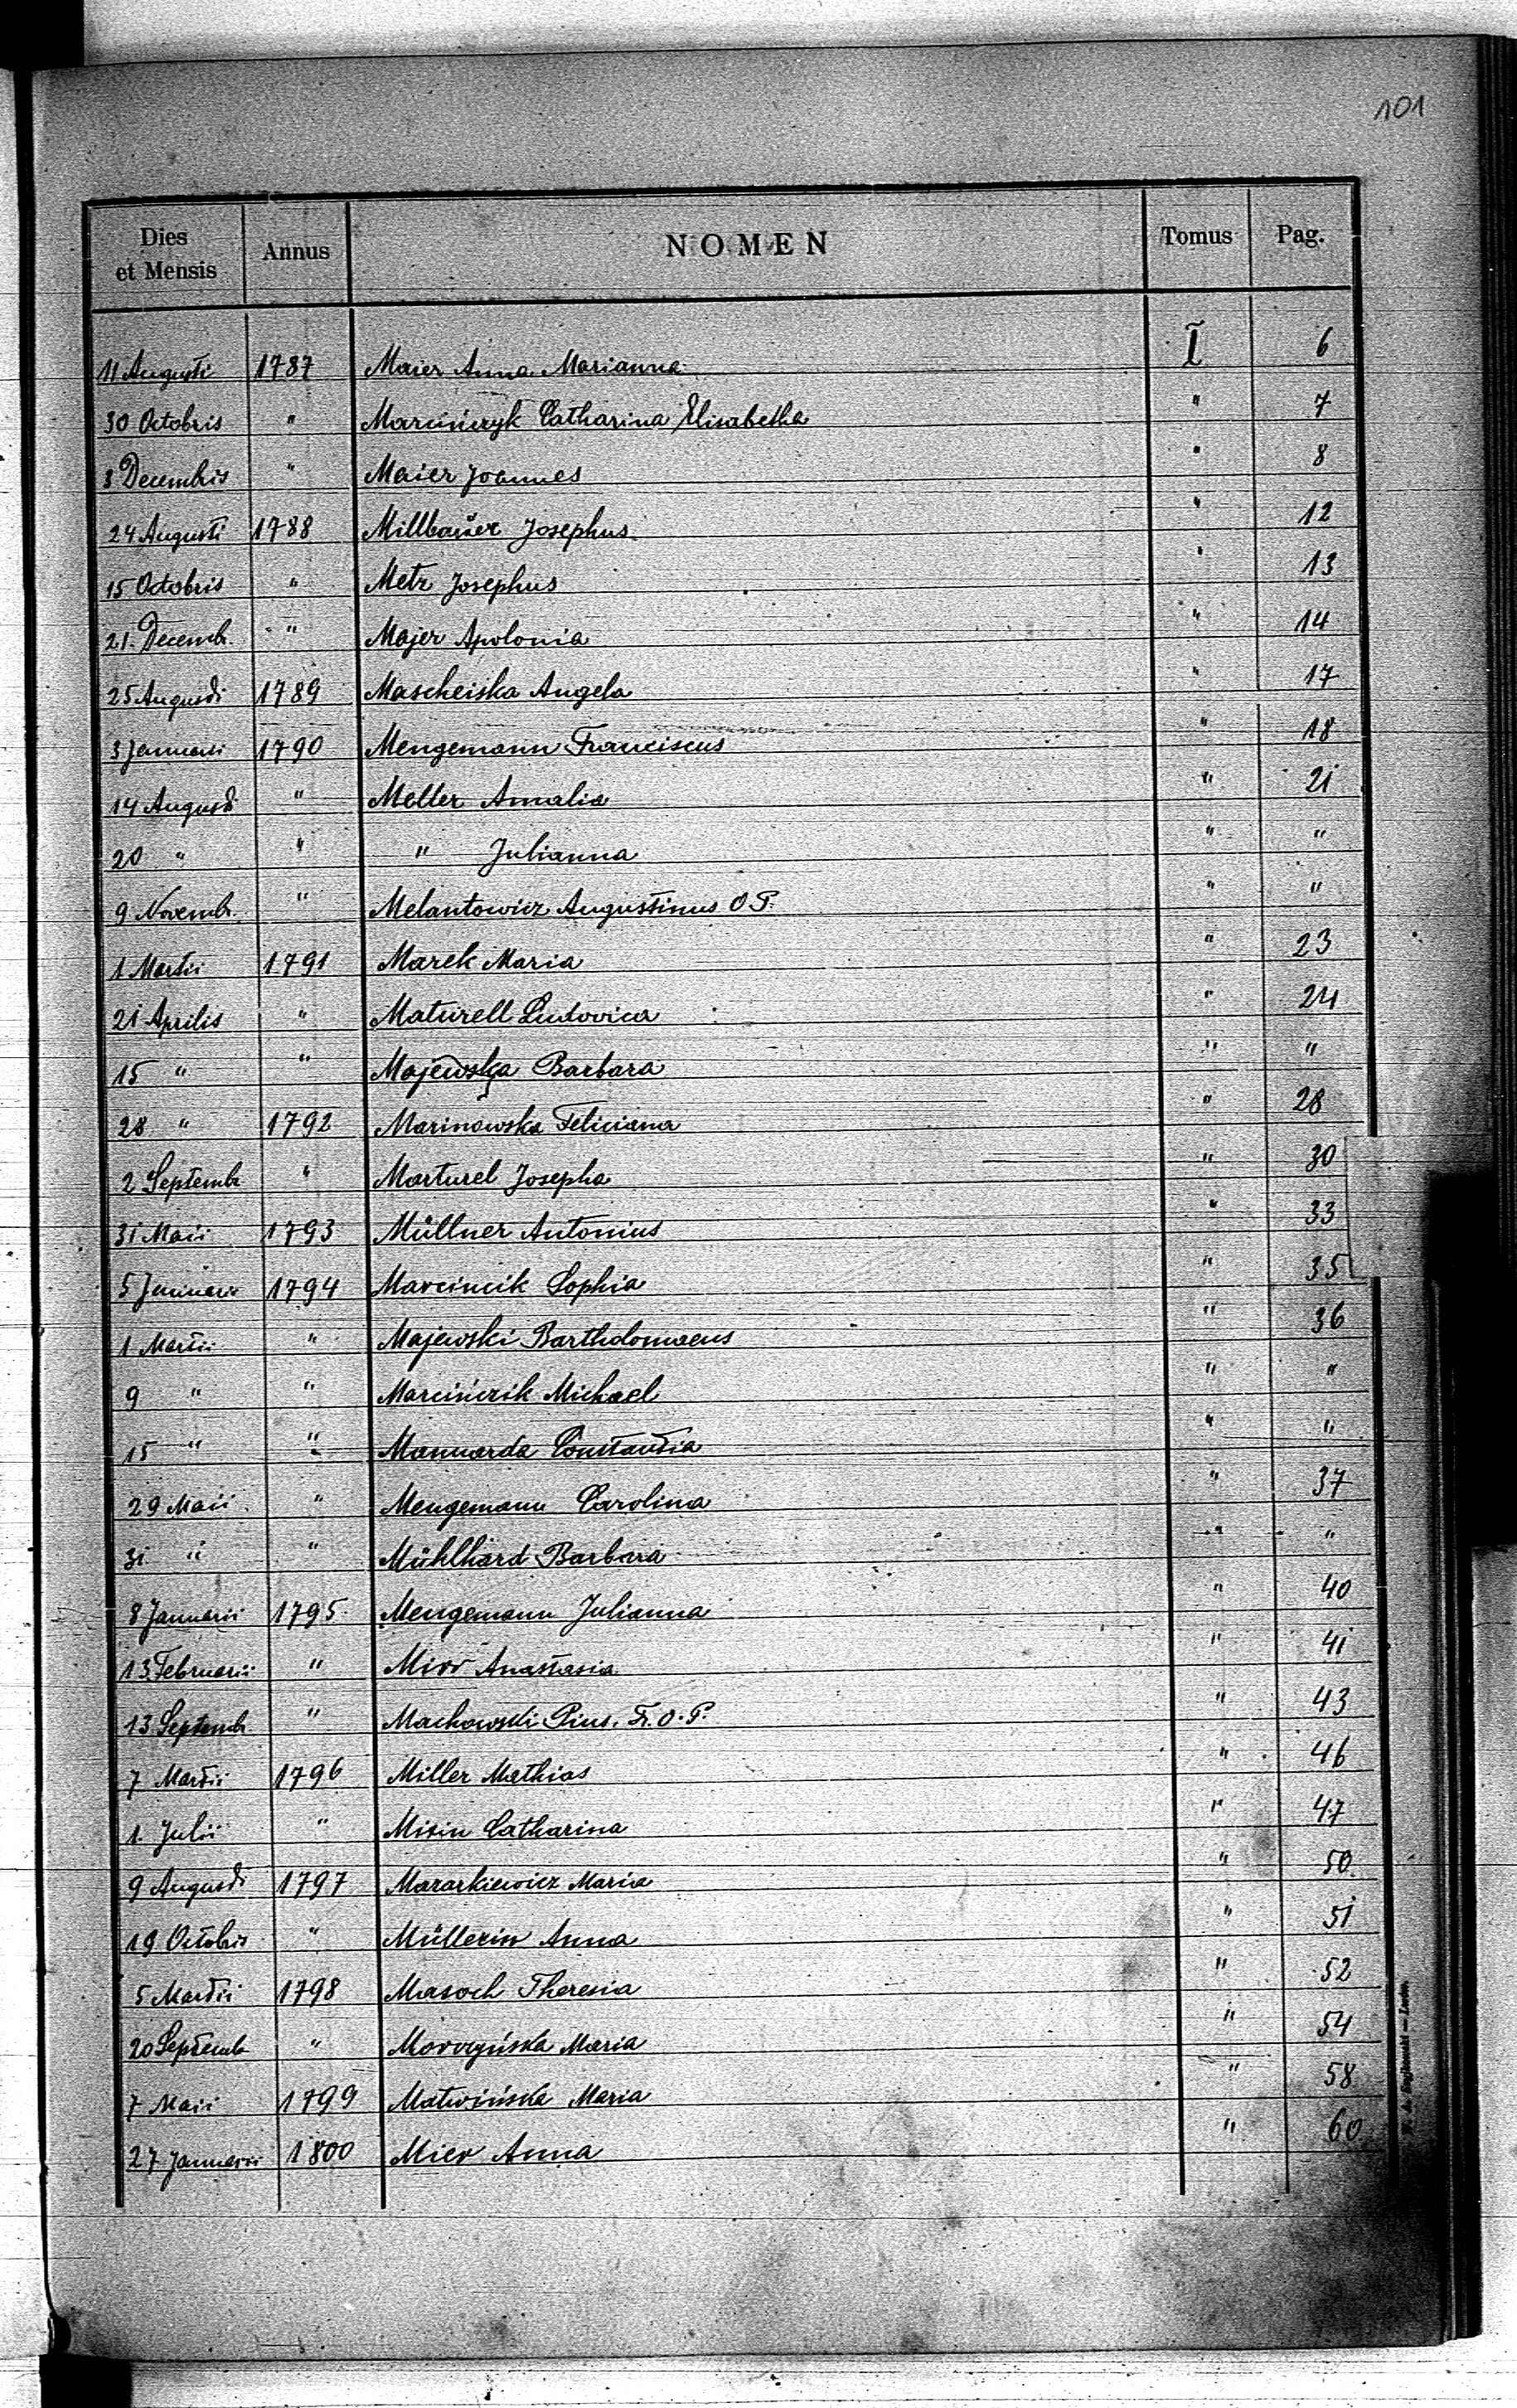 101
Dies et Mensis Annus NOMEN Tomus Pag.
11 Augusti 1787 Maier Anna Marianna I 6
30 Octobris " Marcińczyk Catharina Elisabetha " 7
3 Decembris " Maier Joannes " 8
24 Augusti 1788 Millbaŭer Josephus " 12
15 Octobris " Metz Josephus " 13
21. Decemb. " Majer Apolonia " 14
25 Augusti 1789 Mascheiska Angela " 17
3 Januari 1790 Mengemann Franciscus " 18
14 Augusti " Meller Annalia " 21
20 " " " Julianna " "
9 Novemb. " Melantowicz Augustinus O.P. " "
1 Martii 1791 Marek Maria " 23
21 Aprilis " Maturell Ludovica " 24
15 " " Majewska Barbara " "
28 " 1792 Marinowska Feliciana " 28
2 Septemb " Marturel Josepha " 30
31 Maii 1793 Müllner Antonius " 33
5 Januarii 1794 Marcincik Sophia " 35
1 Martii " Majewski Bartholomaeus " 36
9 " " Marcińczik Michael " "
15 " " Mannarda Constantia " "
29 Maii " Mengemann Carolina " 37
31 " " Mühlhard Barbara " "
8 Januarii 1795 Mengemann Julianna " 40
13 Februarii " Mirr Anastasia " 41
13 Septemb " Machowski Pius. Fr. O.P. " 43
7 Martii 1796 Miller Mathias " 46
1. Julii " Misin Catharina " 47
9 Augusti 1797 Mazarkiewicz Maria " 50
19 Octobris " Müllerin Anna " 51
5 Martii 1798 Masoch Theresia " 52
20 Septemb " Maria " 54
7 Maii 1799 Matwińska Maria " 58
27 Januarii 1800 Mier Anna " 60